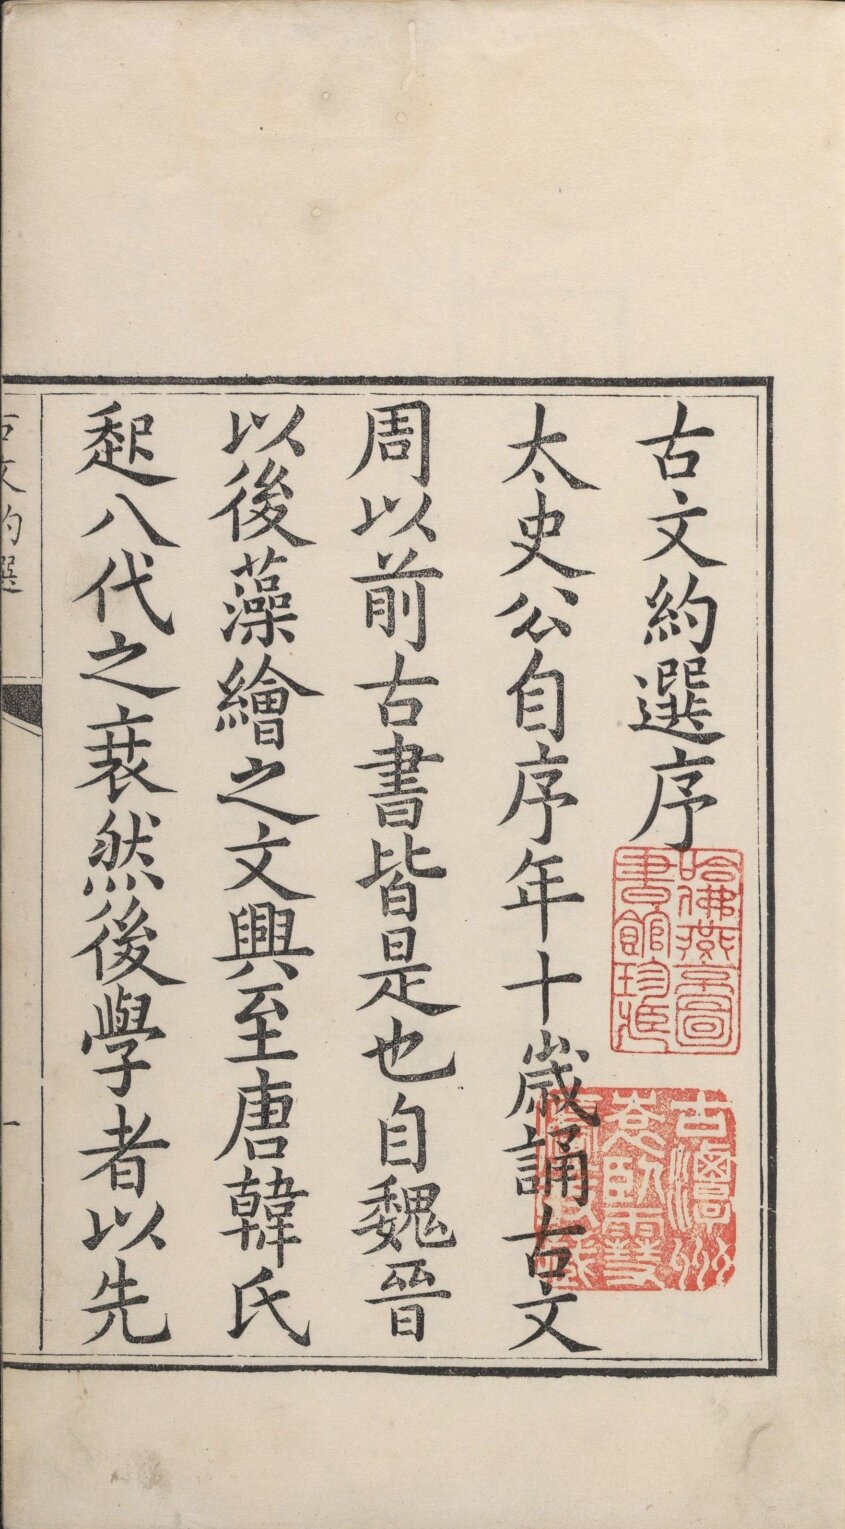 古文約選序
太史公自序年十歲誦古文
周以前古書皆是也自魏晉
以後藻繪之文興至唐韓氏
起八代之衰然後學者以先
哈佛燕京圖
書館珍藏
古文約選
一